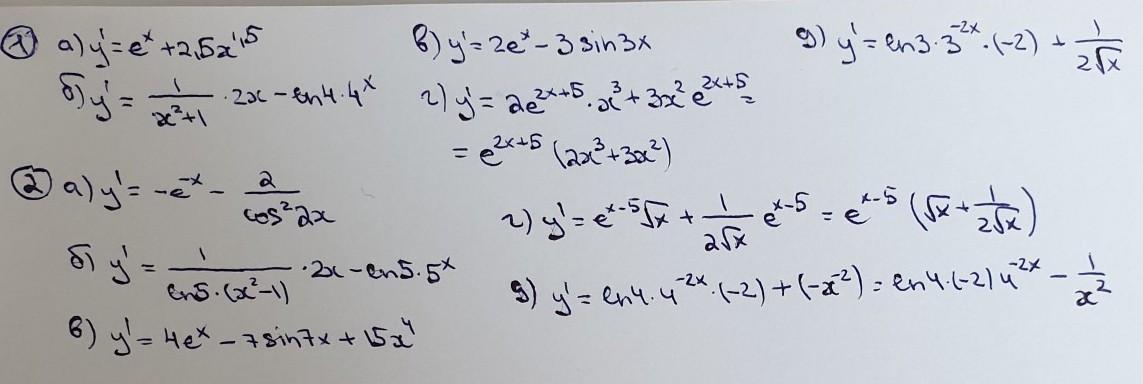 ① а) y' = e^x + 2,5x^1,5
б) y' = 1/(x²+1) · 2x - ln4 · 4^x
в) y' = 2e^x - 3 sin3x
г) y' = 2e^(2x+5) · x³ + 3x² e^(2x+5) =
= e^(2x+5) (2x³ + 3x²)
g) y' = ln3 · 3^(-2x) · (-2) + 1/(2√x)
② а) y' = -e^(-x) - 2/(cos² 2x)
б) y' = 1/(ln5 · (x²-1)) · 2x - ln5 · 5^x
в) y' = 4e^x - 7 sin7x + 15x⁴
г) y' = e^(x-5) √x + 1/(2√x) e^(x-5) = e^(x-5) (√x + 1/(2√x))
g) y' = ln4 · 4^(-2x) · (-2) + (-x^(-2)) = ln4 · (-2) 4^(-2x) - 1/x²